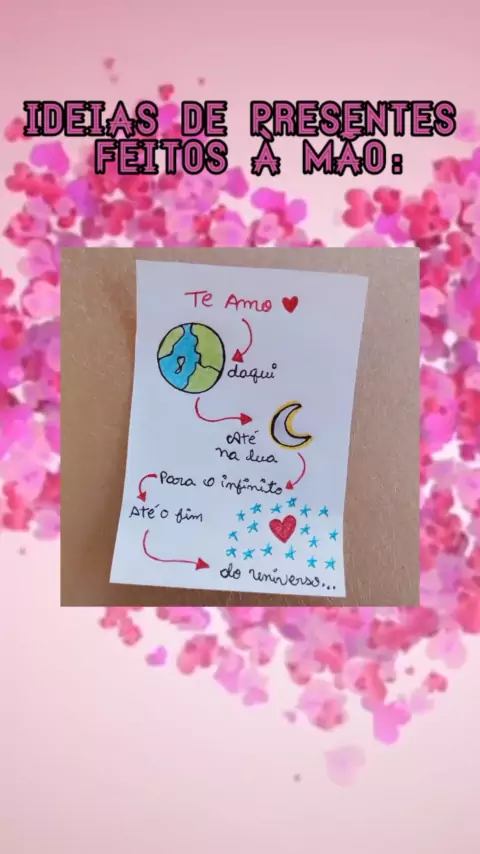 IDEIAS DE PRESENTES
FEITOS À MÃO:
Te Amo
daqui
Até
na lua
Para o infinito
Até o fim
do universo...